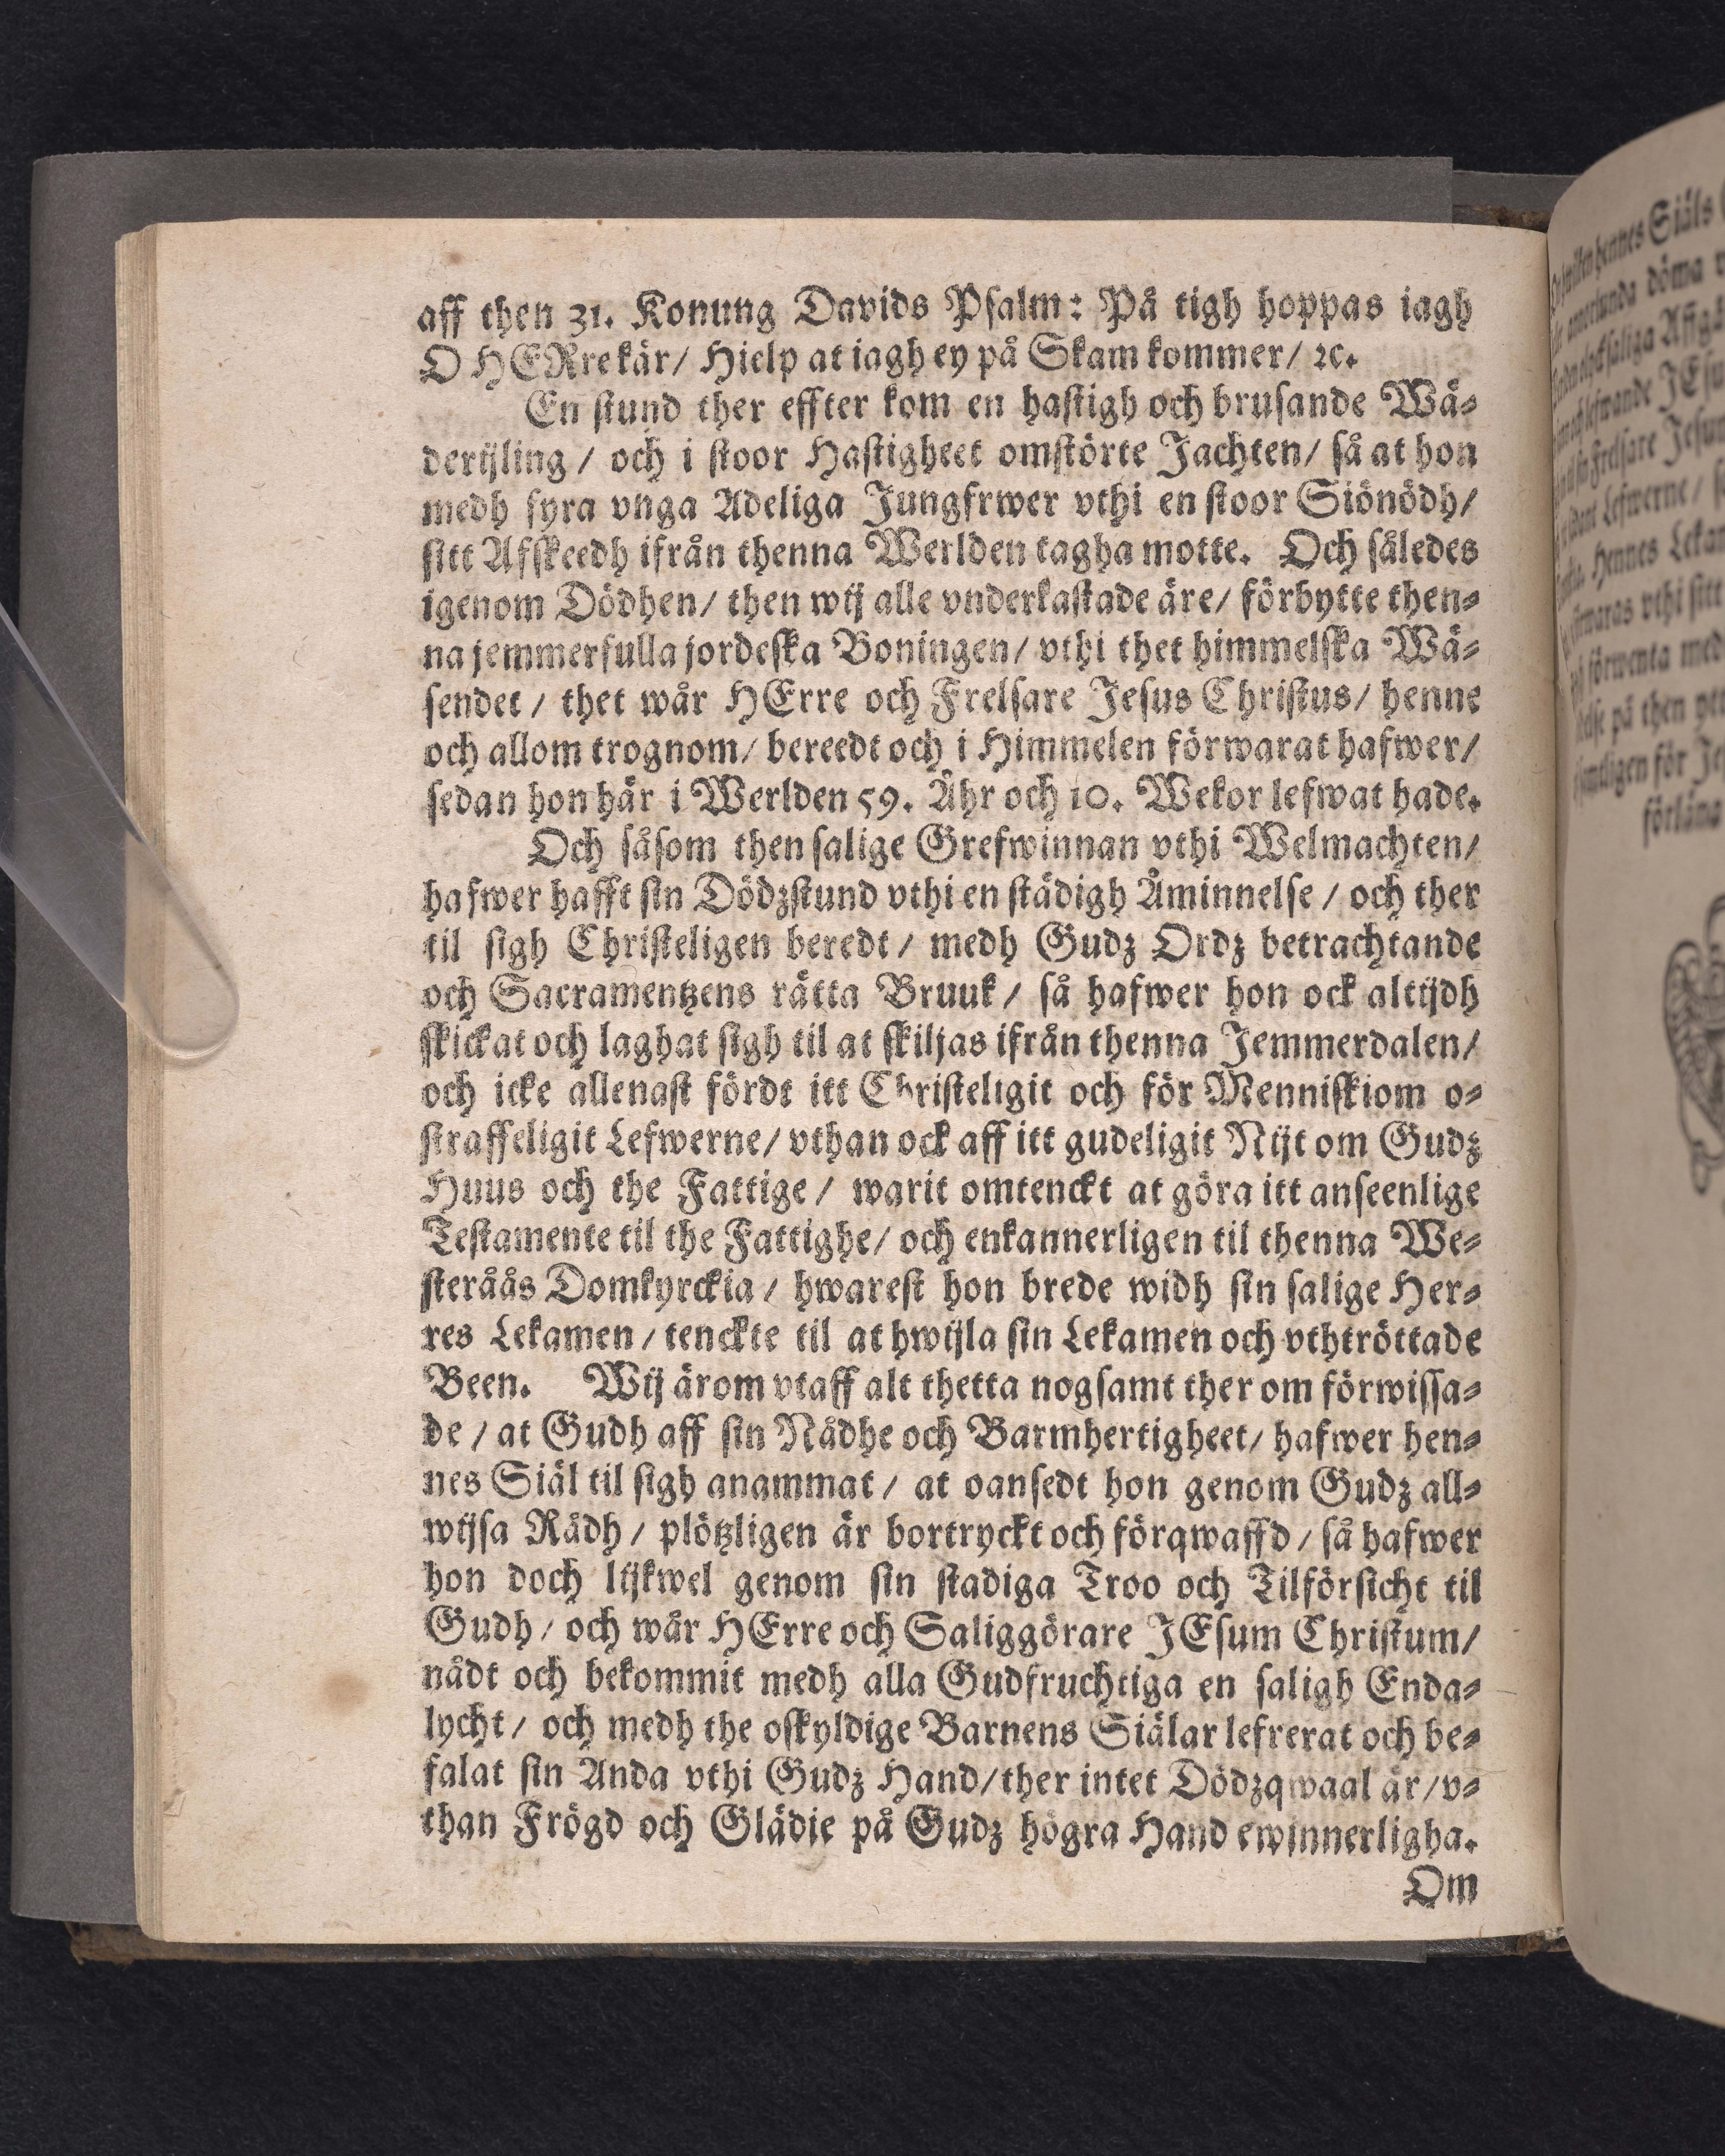 aff then 31. Konung Davids Psalm: På tigh hoppas iagh
O HERre kär/ Hielp at iagh ey på Skam kommer/ ꝛc.
En stund ther effter kom en hastigh och brusande Wä⸗
derijling / och i stoor Hastigheet omstörte Jachten/ så at hon
medh fyra vnga Adeliga Jungfrwer vthi en stoor Siönödh/
sitt Afskeedh ifrån thenna Werlden tagha motte. Och således
igenom Dödhen/ then wij alle vnderkastade äre/ förbytte then⸗
na jemmerfulla jordeska Boningen/ vthi thet himmelska Wä⸗
sendet / thet wår HErre och Frelsare Jesus Christus/ henne
och allom trognom/ bereedt och i Himmelen förwarat hafwer/
sedan hon här i Werlden 59. Åhr och 10. Wekor lefwat hade.
Och såsom then salige Grefwinnan vthi Welmachten/
hafwer hafft sin Dödzstund vthi en städigh Åminnelse / och ther
til sigh Christeligen beredt / medh Gudz Ordz betrachtande
och Sacramentzens rätta Bruuk / så hafwer hon ock altijdh
skickat och laghat sigh til at skiljas ifrån thenna Jemmerdalen/
och icke allenast fördt itt Christeligit och för Menniskiom o⸗
straffeligit Lefwerne/ vthan ock aff itt gudeligit Nijt om Gudz
Huus och the Fattige / warit omtenckt at göra itt anseenlige
Testamente til the Fattighe/ och enkannerligen til thenna We⸗
steråås Domkyrckia / hwarest hon brede widh sin salige Her⸗
res Lekamen / tenckte til at hwijla sin Lekamen och vthtröttade
Been. Wij ärom vtaff alt thetta nogsamt ther om förwissa⸗
de / at Gudh aff sin Nådhe och Barmhertigheet/ hafwer hen⸗
nes Siäl til sigh anammat / at oansedt hon genom Gudz all⸗
wijsa Rådh / plötzligen är bortryckt och förqwaffd / så hafwer
hon doch lijkwel genom sin stadiga Troo och Tilförsicht til
Gudh / och wår HErre och Saliggörare JEsum Christum/
nådt och bekommit medh alla Gudfruchtiga en saligh Enda⸗
lycht / och medh the oskyldige Barnens Siälar lefrerat och be⸗
falat sin Anda vthi Gudz Hand/ ther intet Dödzqwaal är/ v⸗
than Frögd och Glädie på Gudz högra Hand ewinnerligha.
Om